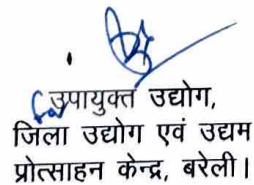 उपायुक्त उद्योग,
जिला उद्योग एवं उद्यम
प्रोत्साहन केन्द्र, बरेली।